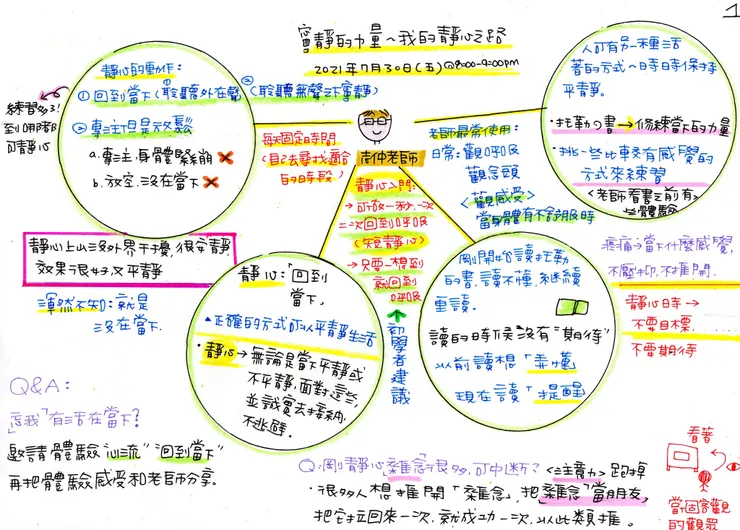 1
寧靜的力量～我的靜心之路
2021年7月30日(五)@8:00-9:00pm
靜心的動作：
①回到當下(聆聽外在聲)
②(聆聽無聲三下寧靜)
練習多了!
到哪都
可靜心
②專注但是放鬆
a.專注.身體緊繃 ✗
b.放空.沒在當下 ✗
每天固定時間
(自己去尋找適合
的時段)
老師
老師最常使用：
日常：觀呼吸
觀念頭
<觀感受>
當身體有不舒服時
人可有另一種活
著的方式～時時保持
平靜。
•托勒的書→練當下的力量
•挑一些比較有感覺的
方式來練習
<老師看書之前有>
些體驗
靜心入門：
→可每一秒.一次
一次回到呼吸
(短靜心)
→只要一想到
就回到
呼吸
初學者建議
靜心上山沒外界干擾,很安靜
效果很好,又平靜
渾然不知：就是
沒在當下.
靜心：「回到
當下」
▲正確的方式可以平靜生活
•靜心→無論是當下平靜或
不平靜,面對這些,
並誠實去接納.
不逃避.
剛開始讀托勒
的書,讀不懂,繼續
重讀.
讀的時候"沒有"期待"
以前讀想「弄懂」
現在讀「提醒」
疼痛→當下什麼感覺,
不壓抑.不推開.
靜心時→
不要目標....
不要期待
Q&A：
這我「有活在當下?
邀請體驗心流"回到當下"
再把體驗感受和老師分享.
Q：剛靜心「雜念」很多,可中斷? <注意力>跑掉
•很多人想推開「雜念」,把「雜念」當朋友,
把它拉回來一次.就成功一次.以此類推.
看著
當個客觀
的觀眾